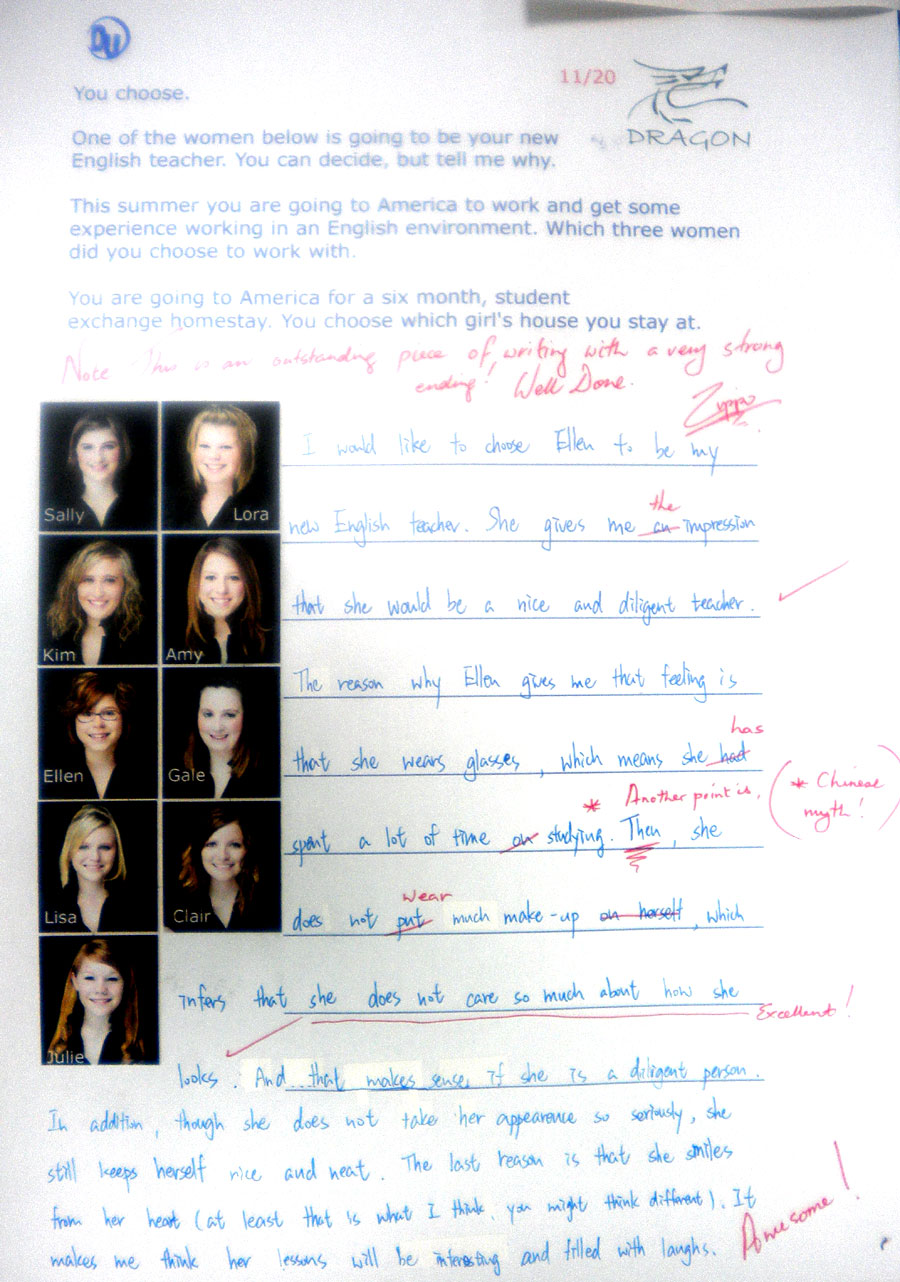 DU
11/20
DRAGON
You choose.
One of the women below is going to be your new
English teacher. You can decide, but tell me why.
This summer you are going to America to work and get some
experience working in an English environment. Which three women
did you choose to work with.
You are going to America for a six month, student
exchange homestay. You choose which girl's house you stay at.
Note This is an outstanding piece of writing with a very strong
ending! Well Done.
Zippo
Sally
Lora
Kim
Amy
Ellen
Gale
Lisa
Clair
Julie
I would like to choose Ellen to be my
the
new English teacher. She gives me an impression
that she would be a nice and diligent teacher.
The reason why Ellen gives me that feeling is
has
that she wears glasses, which means she had
* Another point is,
* Chinese
myth!
spent a lot of time on studying. Then, she
wear
does not put much make-up on herself, which
infers that she does not care so much about how she
Excellent!
looks. And that makes sense if she is a diligent person.
In addition, though she does not take her appearence so seriously, she
still keeps herself nice and neat. The last reason is that she smiles
from her heart (at least that is what I think, you might think different). It
makes me think her lessons will be interesting and filled with laughs.
Awesome!